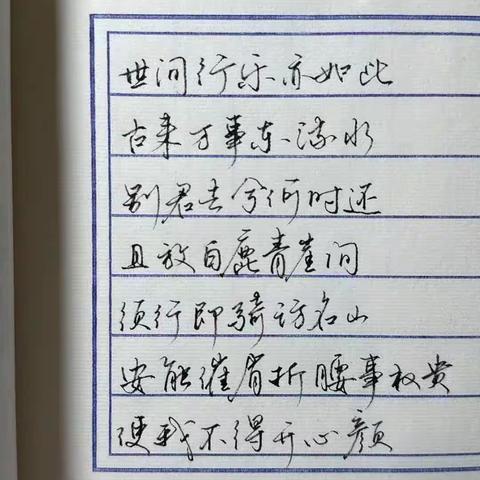 世间行乐亦如此
古来万事东流水
别君去兮何时还
且放白鹿青崖间
须行即骑访名山
安能摧眉折腰事权贵
使我不得开心颜